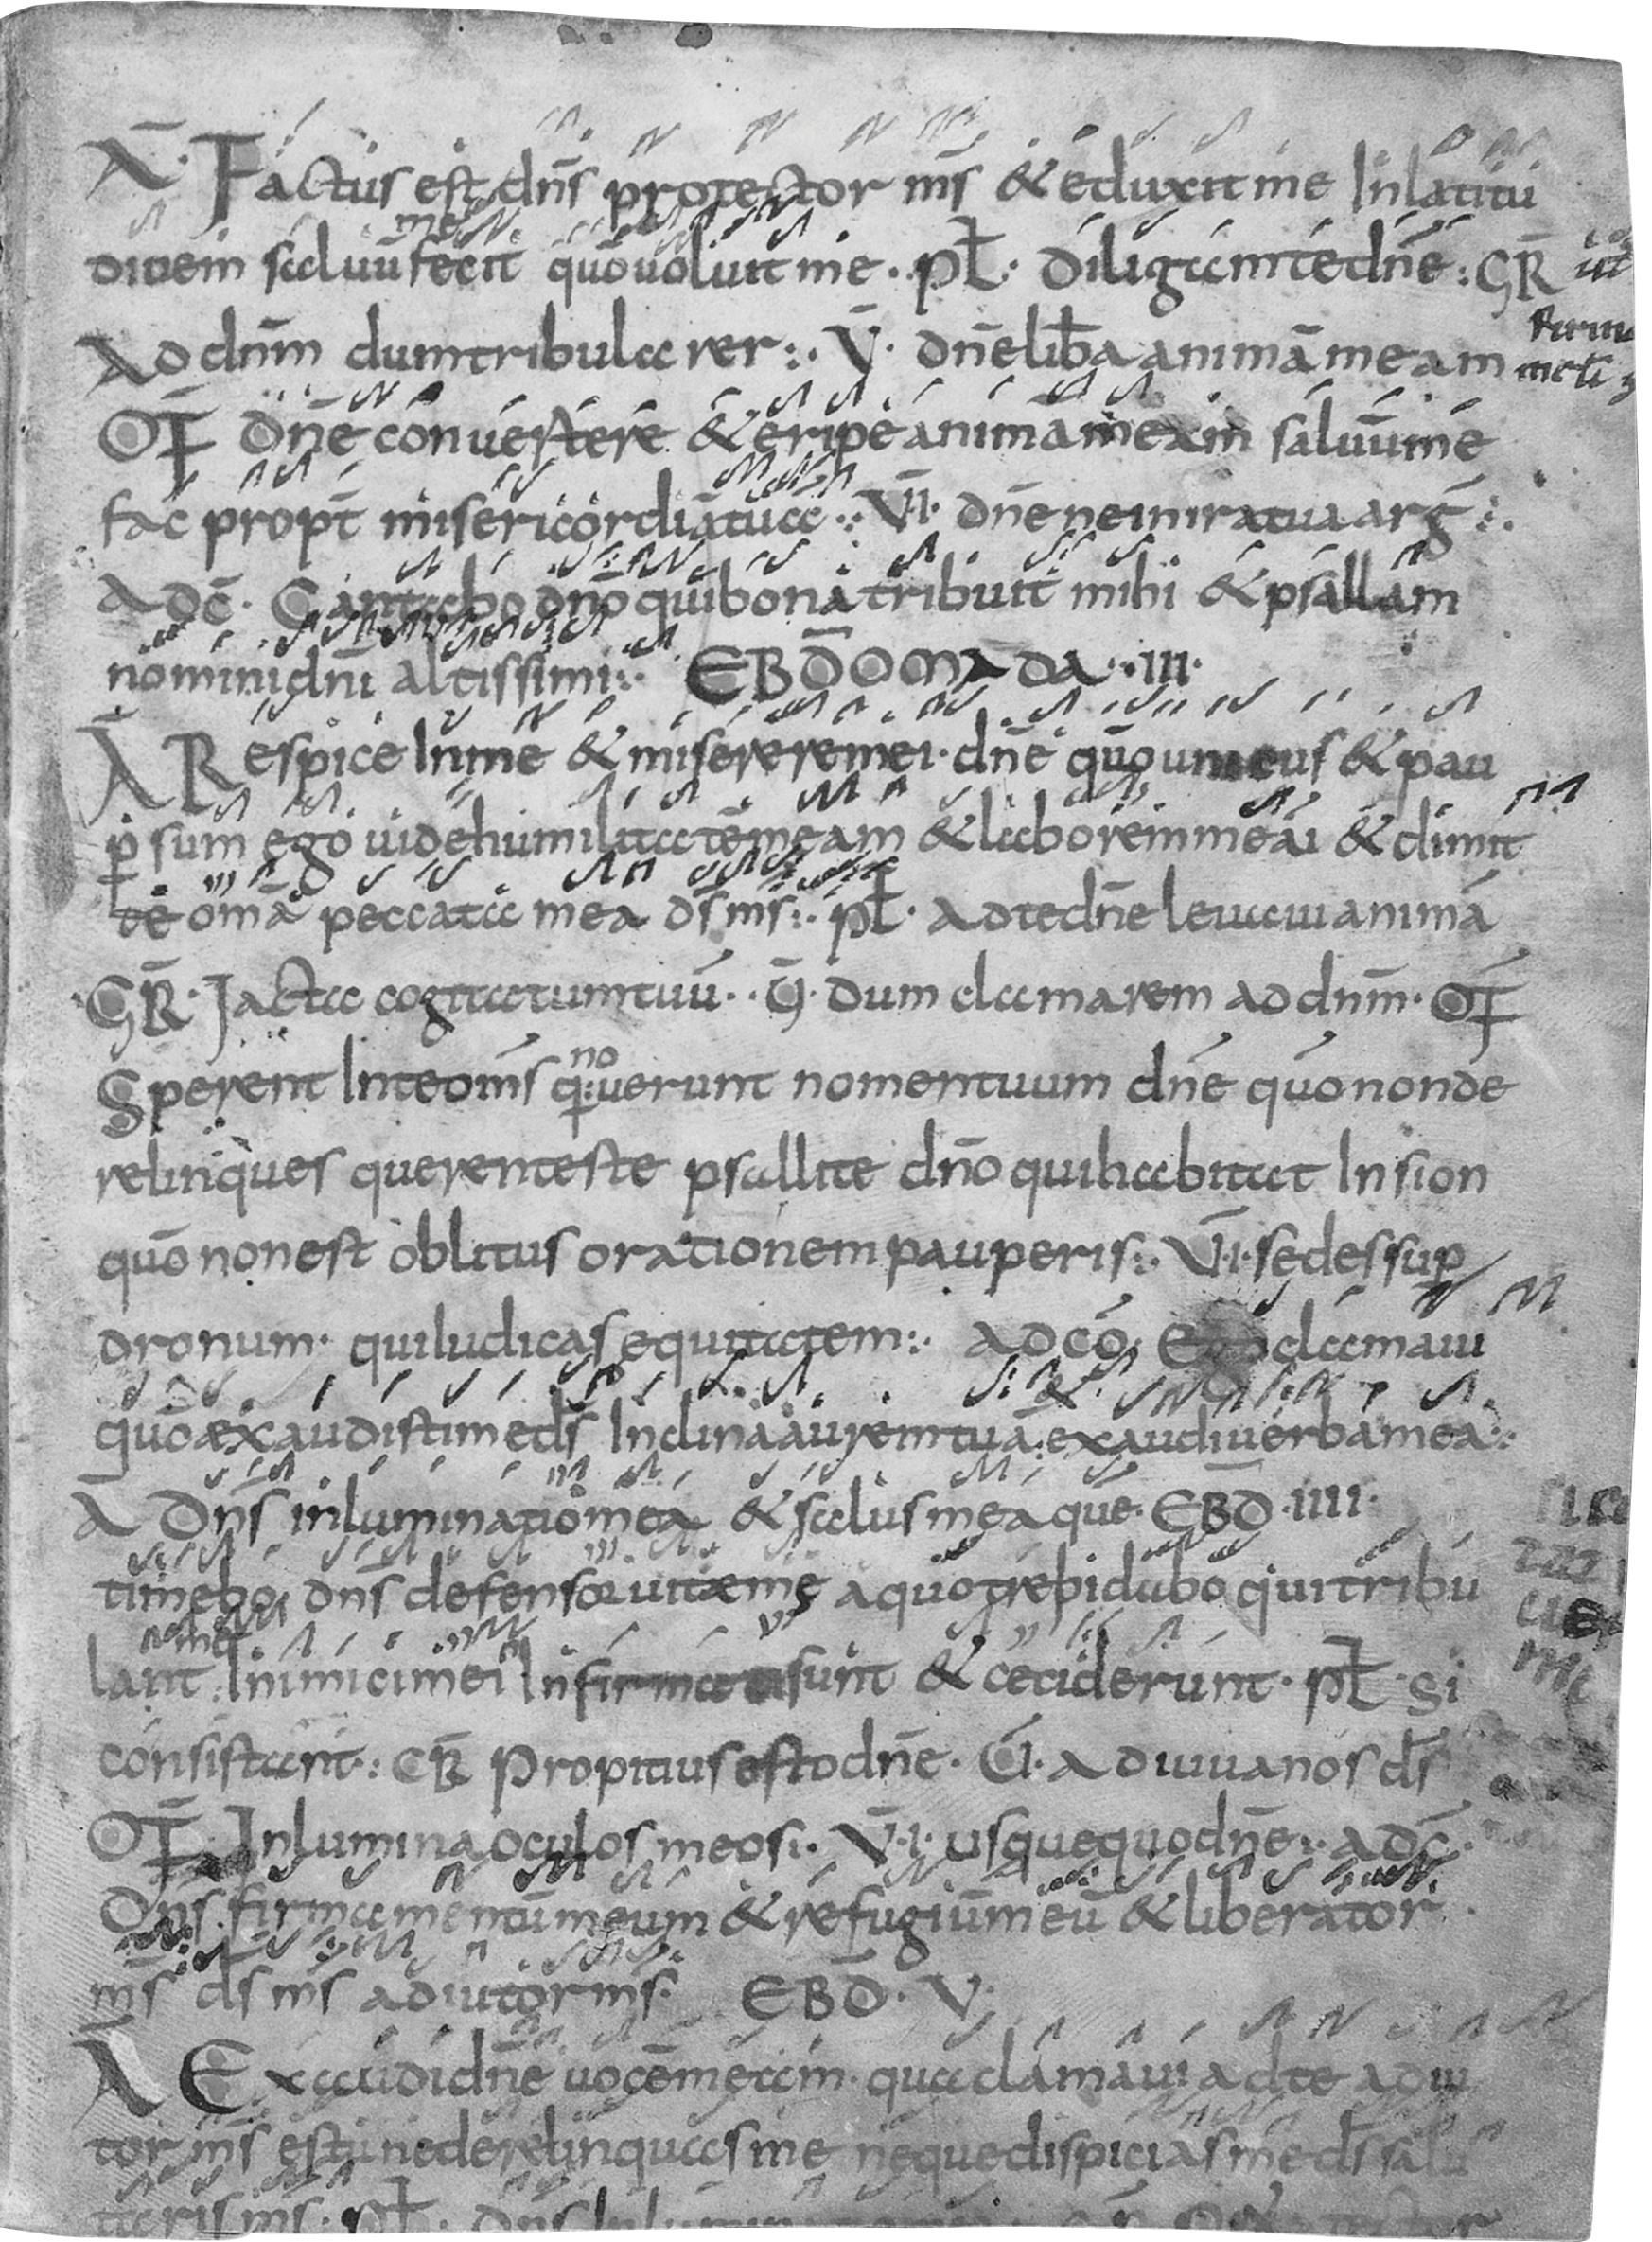 Ā· Factus est dn̄s protector m̄s & eduxit me In latitu
dinem saluū me fecit quō uoluit me · pł · diligam te dn̄e : GR̄
Ad dn̄m dum tribularer :· V̄ · dn̄e lib̄a animā meam
OF̄ dn̄e conuertere & eripe animā meam saluū me
fac propt̄ misericordiā tuā :· V̄I· dn̄e ne in ira tua arḡ :·
Ad c̄· Cantabo dn̄o qui bona tribuit mihi & psallam
nomini dn̄i altissimi :· EBD̄OMADA ·· III·
Ā Respice In me & miserere mei · dn̄e quō unicus & pau
p̱ sum ego uide humilitatē meam & laborem meā & dimit
te om̄a peccata mea ds̄ ms̄ :· pł · ad te dn̄e leuaui animā
GR̄· Jacta cogitatum tuū ·· V̄· dum clamarem ad dn̄m · OF̄
Sperent In te om̄s q: nouerunt nomen tuum dn̄e quō non de
relinques querentes te psallite dn̄o qui habitat In sion
quō non est oblitus orationem pauperis :· V̄I· sedes sup̱
dronum · qui Iudicas equitatem :· ad cō· Ego clamaui
quō exaudisti me ds̄ Inclina aurem tuā & exaudi uerba mea :·
Ā Dn̄s inluminatio mea & salus mea que · EBD̄ · IIII·
timebo dn̄s defensor uitæ meę a quo trepidabo qui tribu
lant me Inimici mei Infirmati sunt & ceciderunt · pł · Si
consistant : GR̄ Propitius esto dn̄e · V̄· Adiuua nos ds̄
OF̄ Inlumina oculos meos :· V̄·I· usquequo dn̄e :· ad c̄·
Dn̄s firmamentū meum & refugiūm eū & liberator
ms̄ ds̄ ms̄ adiutor ms̄ · EBD̄ · V·
Ā Exaudi dn̄e uocē meam · qua clamaui ad te adiu
tor ms̄ esto ne derelinquas me neque dispicias me ds̄ salu
taris ms̄ · pł · Dn̄s Inlumin